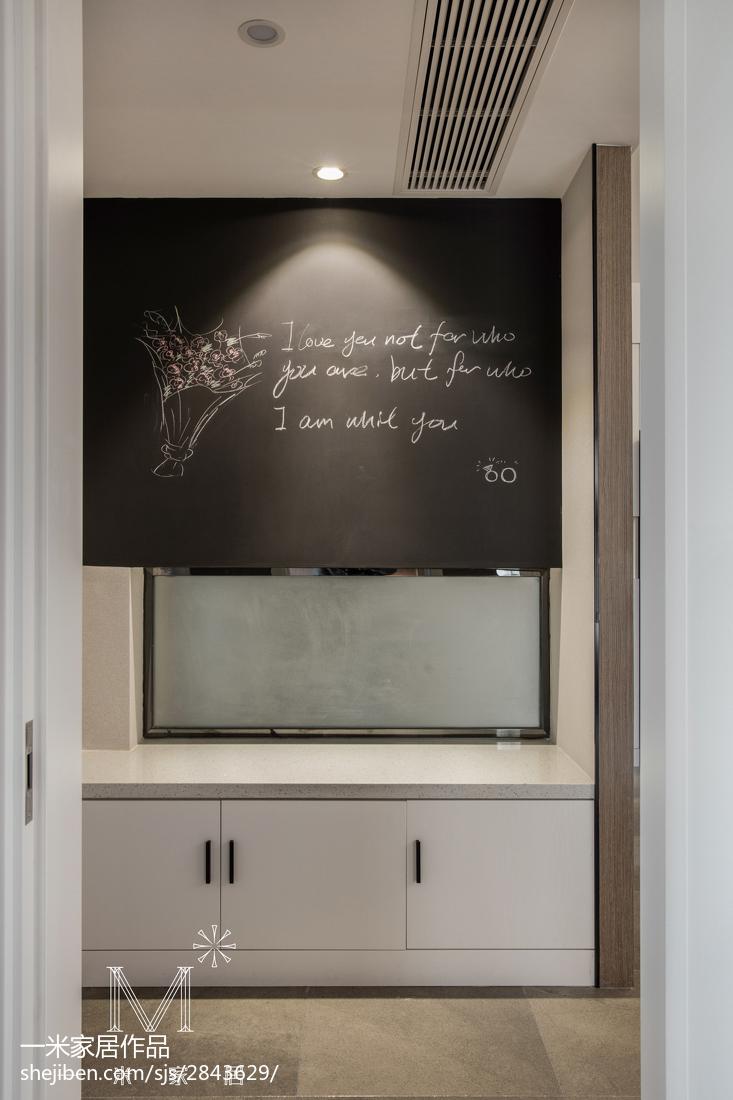 I love you not for who
you are. but for who
I am whit you
M
一米家居作品
shejiben.com/sjs/2843629/
一 米 家 居